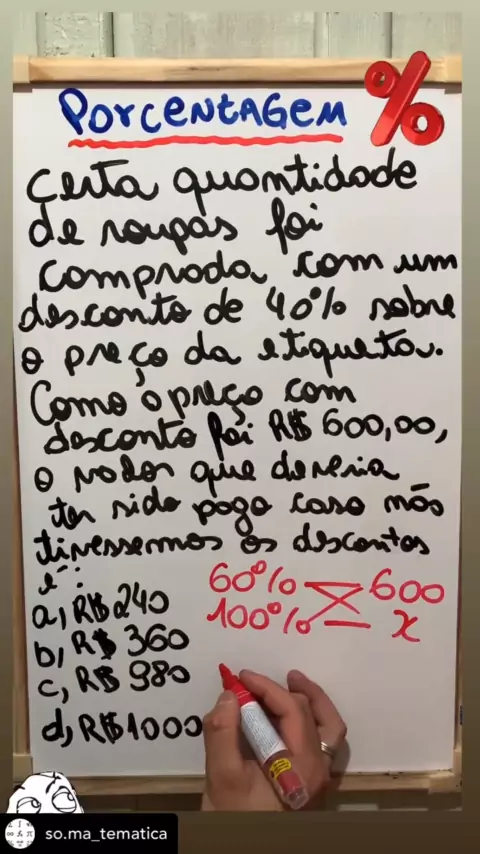 Porcentagem %
Certa quantidade
de roupas foi
comprada com um
desconto de 40% sobre
o preço da etiqueta.
Como o preço com
desconto foi R$ 600,00,
o valor que deveria
ter sido pago caso nós
tivessemos os descontos
é:
60% 600
100% x
a) R$ 240
b) R$ 360
c) R$ 980
d) R$ 1000
so.ma_tematica